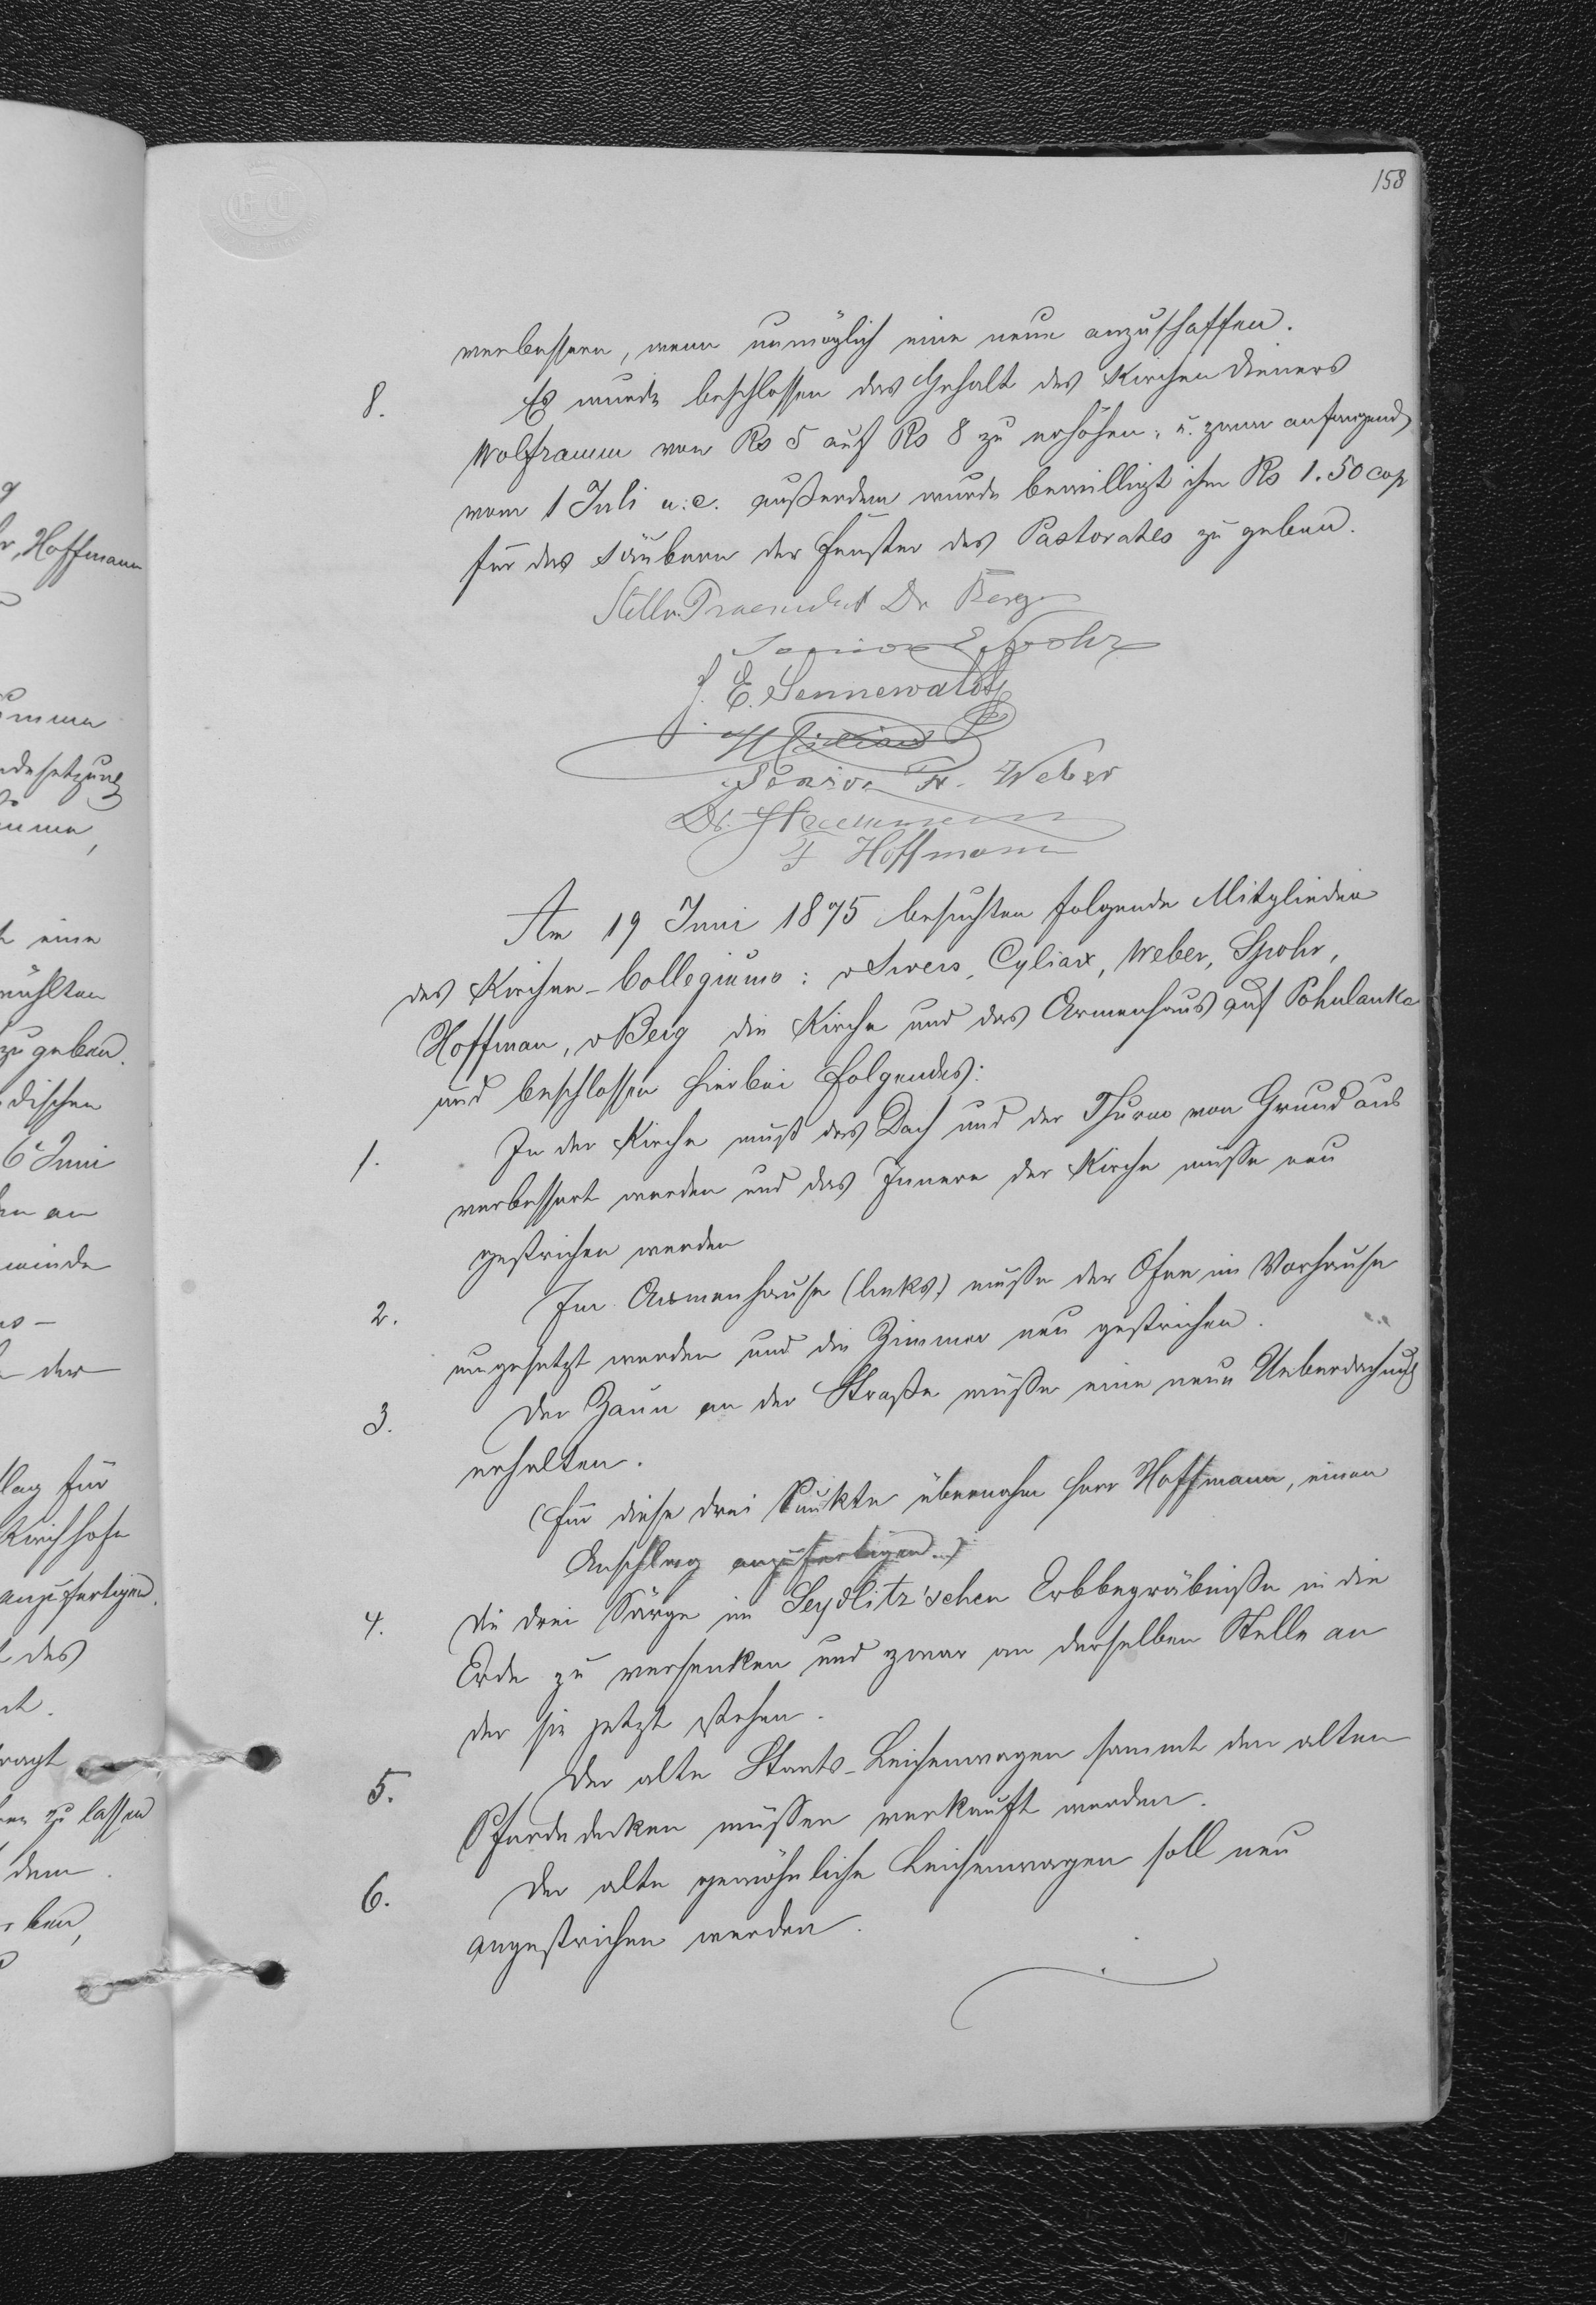 158
verbessern, wenn unmöglich eine neue anzuschaffen.
8. Es wurde beschlossen das Gehalt des Kirchendieners
Wolframm von Rs 5 auf Rs 8 zu erhöhen, u. zwar anfangend
vom 1 Juli a. c. außerdem wurde bewilligt ihm Rs 1.50 cop
für das Säubern der Fenster des Pastorates zu geben.
Dr Berg
Spohr
J. E. Sennewaldt
Senior Fr. Weber
Dr.
F Hoffmann
Am 19 Juni 1875 besuchten folgende Mitglieder
des Kirchen-Collegiums: Cyliax, Weber, Spohr,
Hoffman, v Berg die Kirche und das Armenhaus auf Pohulanka
und beschlossen hierbei Folgendes:
1. In der Kirche muß das Dach und der Thurm von Grund aus
verbessert werden und das Innere der Kirche müsse neu
gestrichen werden
2. Im Armenhause (links) müsse der Ofen im Vorhause
umgesetzt werden und die Zimmer neu gestrichen.
3. Der Zaun an der Straße müsse eine neue Ueberdachung
erhalten.
(Für diese drei Punkte übernahm Herr Hoffmann, einen
Anschlag anzufertigen.)
4. Die drei Särge im Seydlitz'schen Erbbegräbniße in die
Erde zu versenken und zwar an derselben Stelle an
der sie jetzt stehen.
5. Der alte Staats-Leichenwagen sammt den alten
Pferdedecken müssen verkauft werden.
6. Der alte gewöhnliche Leichenwagen soll neu
angestrichen werden.